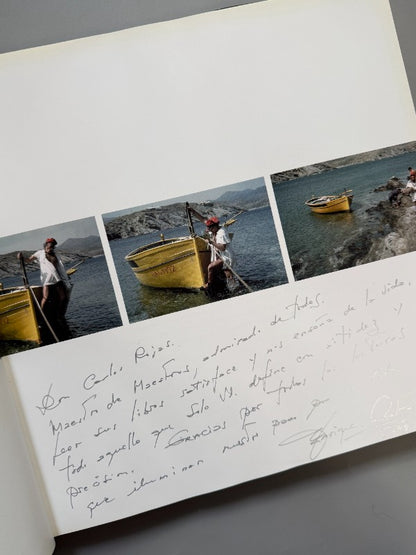 Don Carlos Rojas.
Maestro de Maestros, admirado de todos.
Leer sus libros satisface y nos enseña de la vida,
todo aquello que solo V. define con nitidez y
precisión. Gracias por todas las
que iluminan nuestro
Enrique